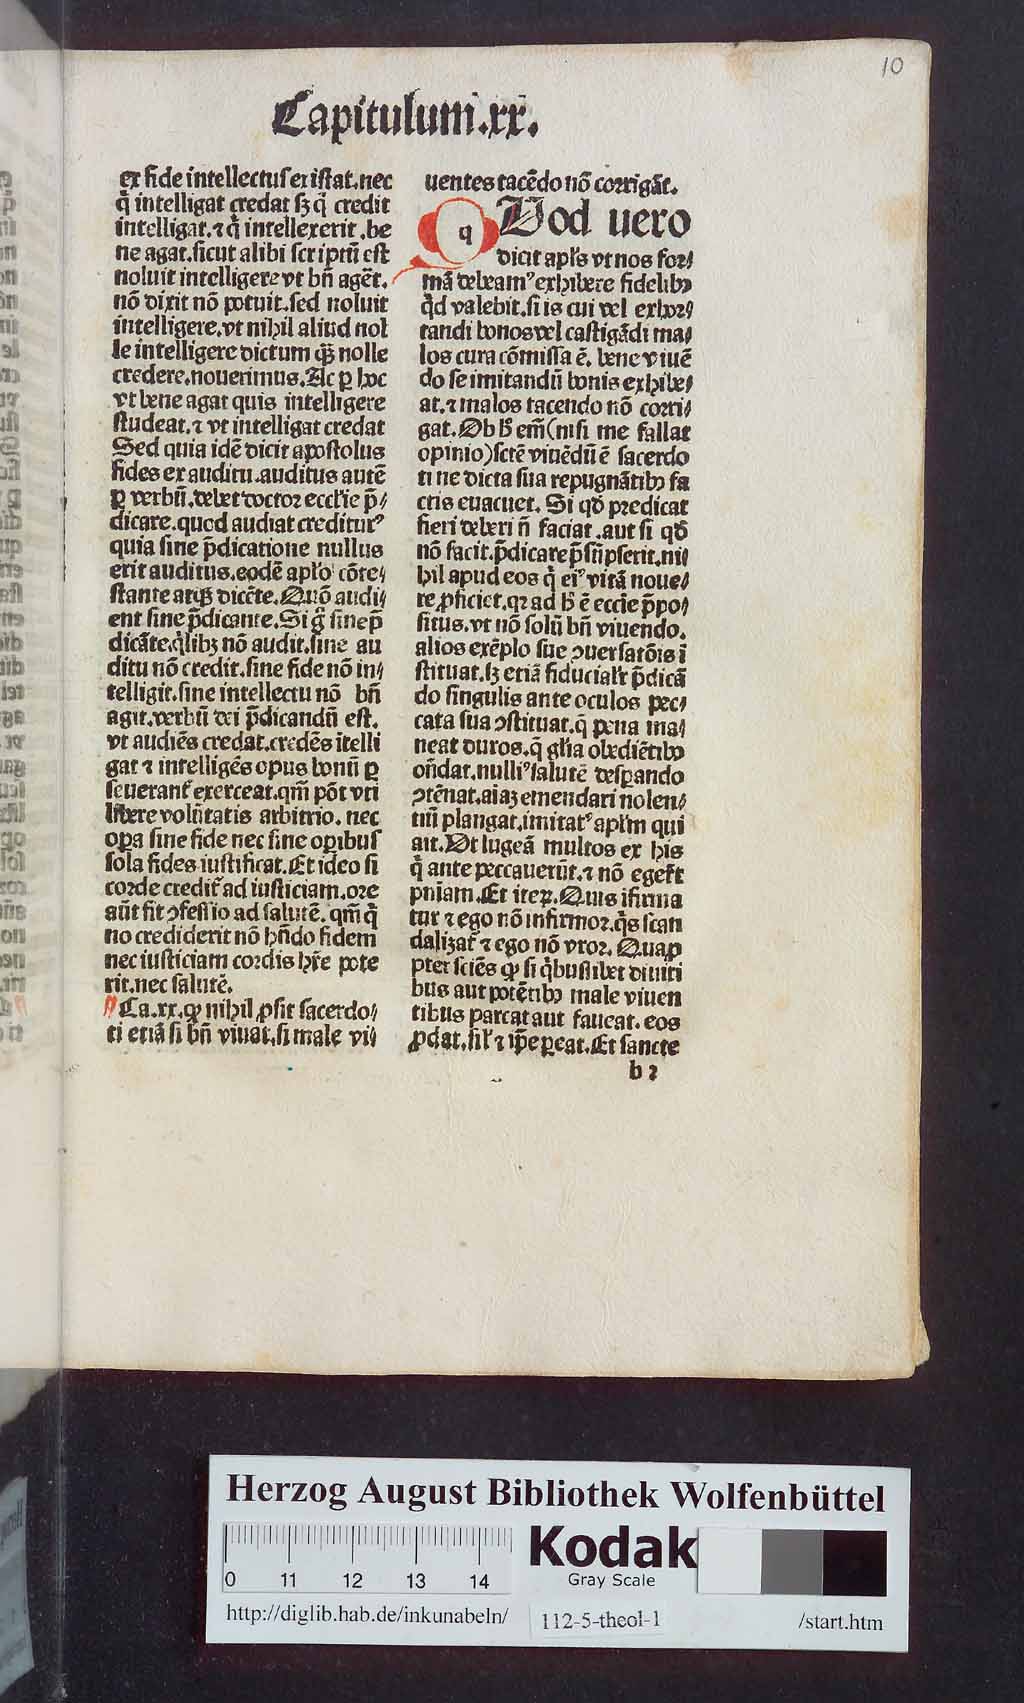 10
Capitulum.xx.
ex fide intellectus existat.nec
q̄ intelligat credat sꝫ q̄ credit
intelligat.⁊ q̄ intellexerit.be
ne agat.sicut alibi scriptū est
noluit intelligere vt bn̄ agēt.
nō dixit nō potuit.sed noluit
intelligere.vt nihil aliud nol
le intelligere dictum qꝫ nolle
credere.nouerimus.Ac ꝑ hoc
vt bene agat quis intelligere
studeat.⁊ vt intelligat credat
Sed quia idē dicit apostolus
fides ex auditu.auditus autē
ꝑ verbū.debet doctor eccl'ie p̄/
dicare.quod audiat creditur'
quia sine p̄dicatione nullus
erit auditus.eodē apl'o cōte/
stante atqꝫ dicēte.Quō audi/
ent sine p̄dicante.Si g̊ sine p̄
dicāte.q̄libꝫ nō audit.sine au
ditu nō credit.sine fide nō in/
telligit.sine intellectu nō bn̄
agit.verbū dei p̄dicandū est.
vt audiēs credat.credēs ītelli
gat ⁊ intelligēs opus bonū ꝑ
seuerant' exerceat.qm̄ pōt vti
libere volūtatis arbitrio.nec
oꝑa sine fide nec sine oꝑibus
sola fides iustificat.Et ideo si
corde credit' ad iusticiam.ore
aūt fit ↄfessio ad salutē.qm̄ q̄
no crediderit nō hn̄do fidem
nec iusticiam cordis hr̄e pote
rit.nec salutē.
¶Ca.xx.ꝙ nihil ꝓsit sacerdo/
ti etiā si bn̄ viuat.si male vi/
uentes tacēdo nō corrigāt.
q QVod uero
dicit apl's vt nos for/
mā debeam' exhibere fidelibꝫ
q̊d valebit.si is cui vel exhor/
tandi bonos vel castigādi ma/
los cura cōmissa ē.bene viuē
do se imitandū bonis exhibe/
at.⁊ malos tacendo nō corri/
gat.Ob h' em̄(nisi me fallat
opinio)sctē viuēdū ē sacerdo
ti ne dicta sua repugnātibꝫ fa
ctis euacuet.Si qd̄ predicat
fieri deberi n̄ faciat.aut si qd̄
nō facit.p̄dicare p̄sūpserit.ni/
hil apud eos q̄ ei' vitā noue/
re ꝓficiet.qꝛ ad h' ē eccīe p̄po/
situs.vt nō solū bn̄ viuendo.
alios exēplo sue ↄuersatōis ī
stituat.sꝫ etiā fiducialr' p̄dicā
do singulis ante oculos pec/
cata sua ↄstituat.q̄ pena ma/
neat duros.q̄ gl'ia obediētibꝫ
on̄dat.nulli' salutē desꝑando
ↄtēnat.aīaꝫ emendari nolen/
tiū plangat.imitat' apl'm qui
ait.Vt lugeā multos ex his
q̄ ante peccauerūt.⁊ nō eger't
pn̄iam.Et iteꝝ.Quis īfirma
tur ⁊ ego nō infirmor.q̄s scan
dalizat' ⁊ ego nō vror.Quap
pter sciēs ꝙ si q̄bustibet diuiti
bus aut potētibꝫ male viuen
tibus parcat aut faueat.eos
ꝓdat.sil' ⁊ ip̄e ꝑeat.Et sancte
b 2
Herzog August Bibliothek Wolfenbüttel
0 11 12 13 14
Kodak
Gray Scale
http://diglib.hab.de/inkunabeln/ 112-5-theol-1 /start.htm